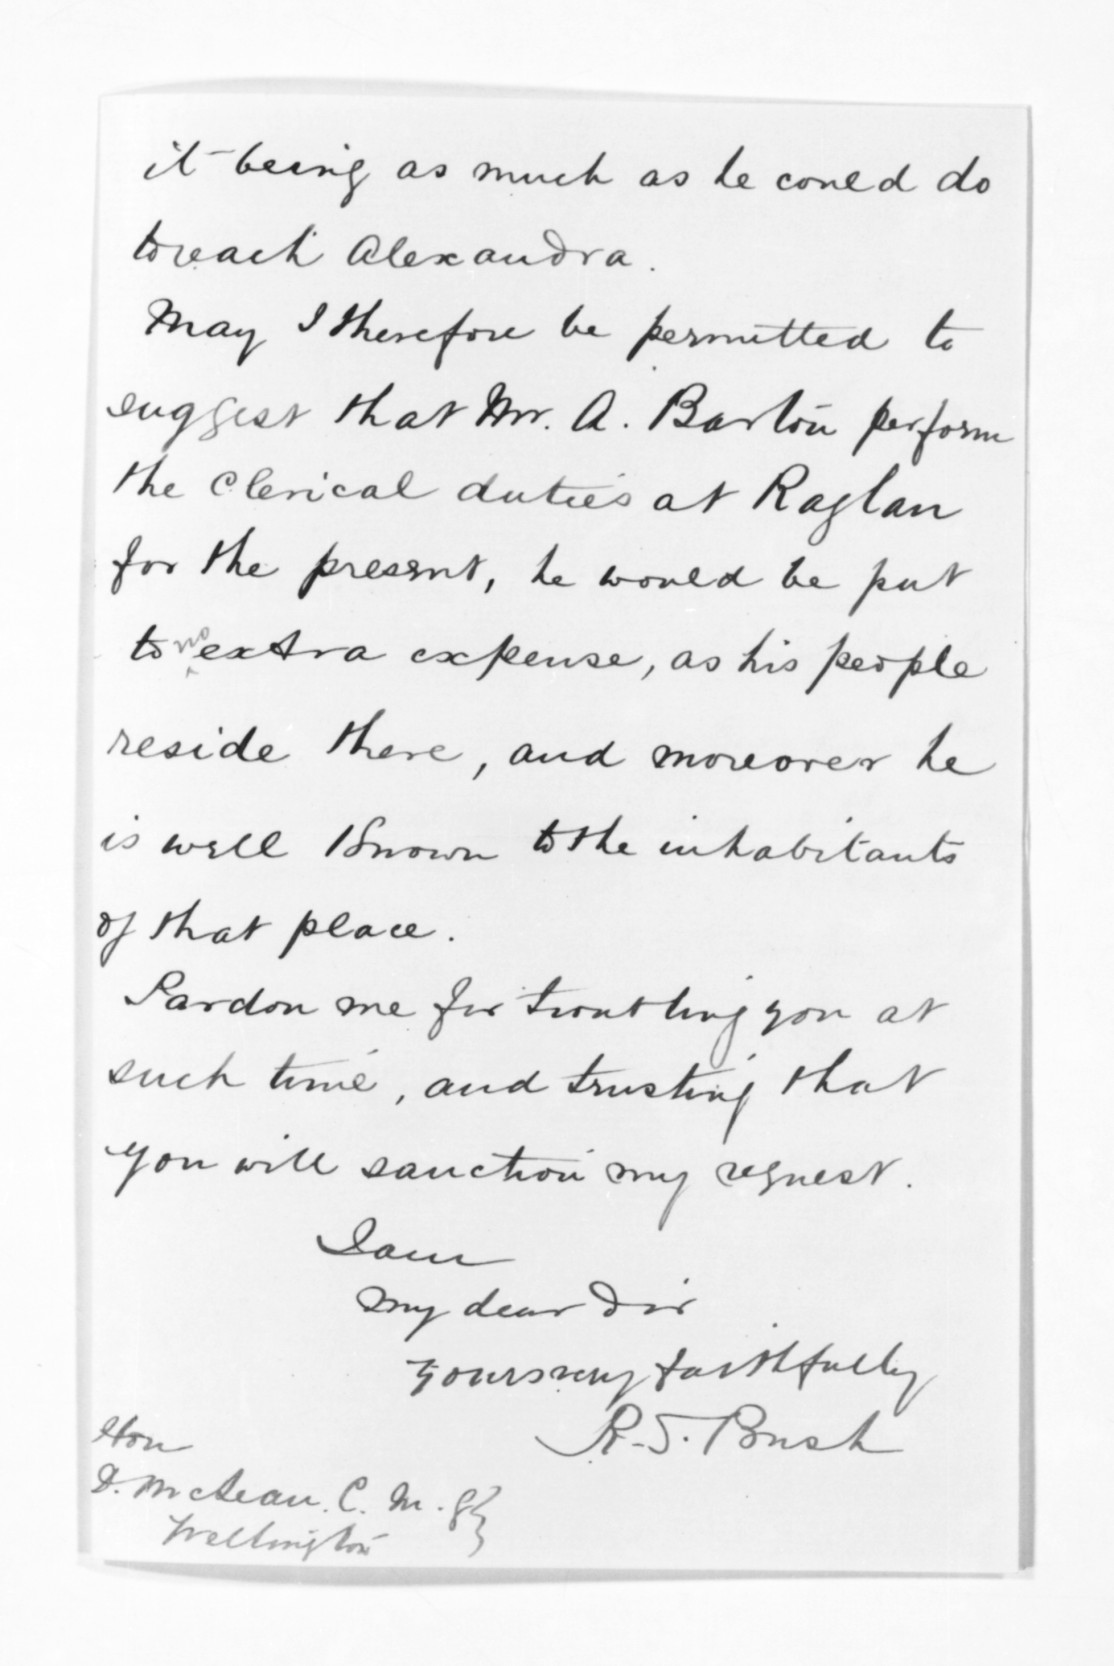 it being as much as he could do
to reach Alexandra.
May I therefore be permitted to
suggest that Mr. A. Barton perform
the clerical duties at Raglan
for the present, he would be put
to no extra expense, as his people
reside there, and moreover he
is well known to the inhabitants
of that place.
Pardon me for troubling you at
such time, and trusting that
you will sanction my request.
I am
my dear Sir
Yours very faithfully
R. S. Bush
Hon
D. McLean. C. M. G
Wellington